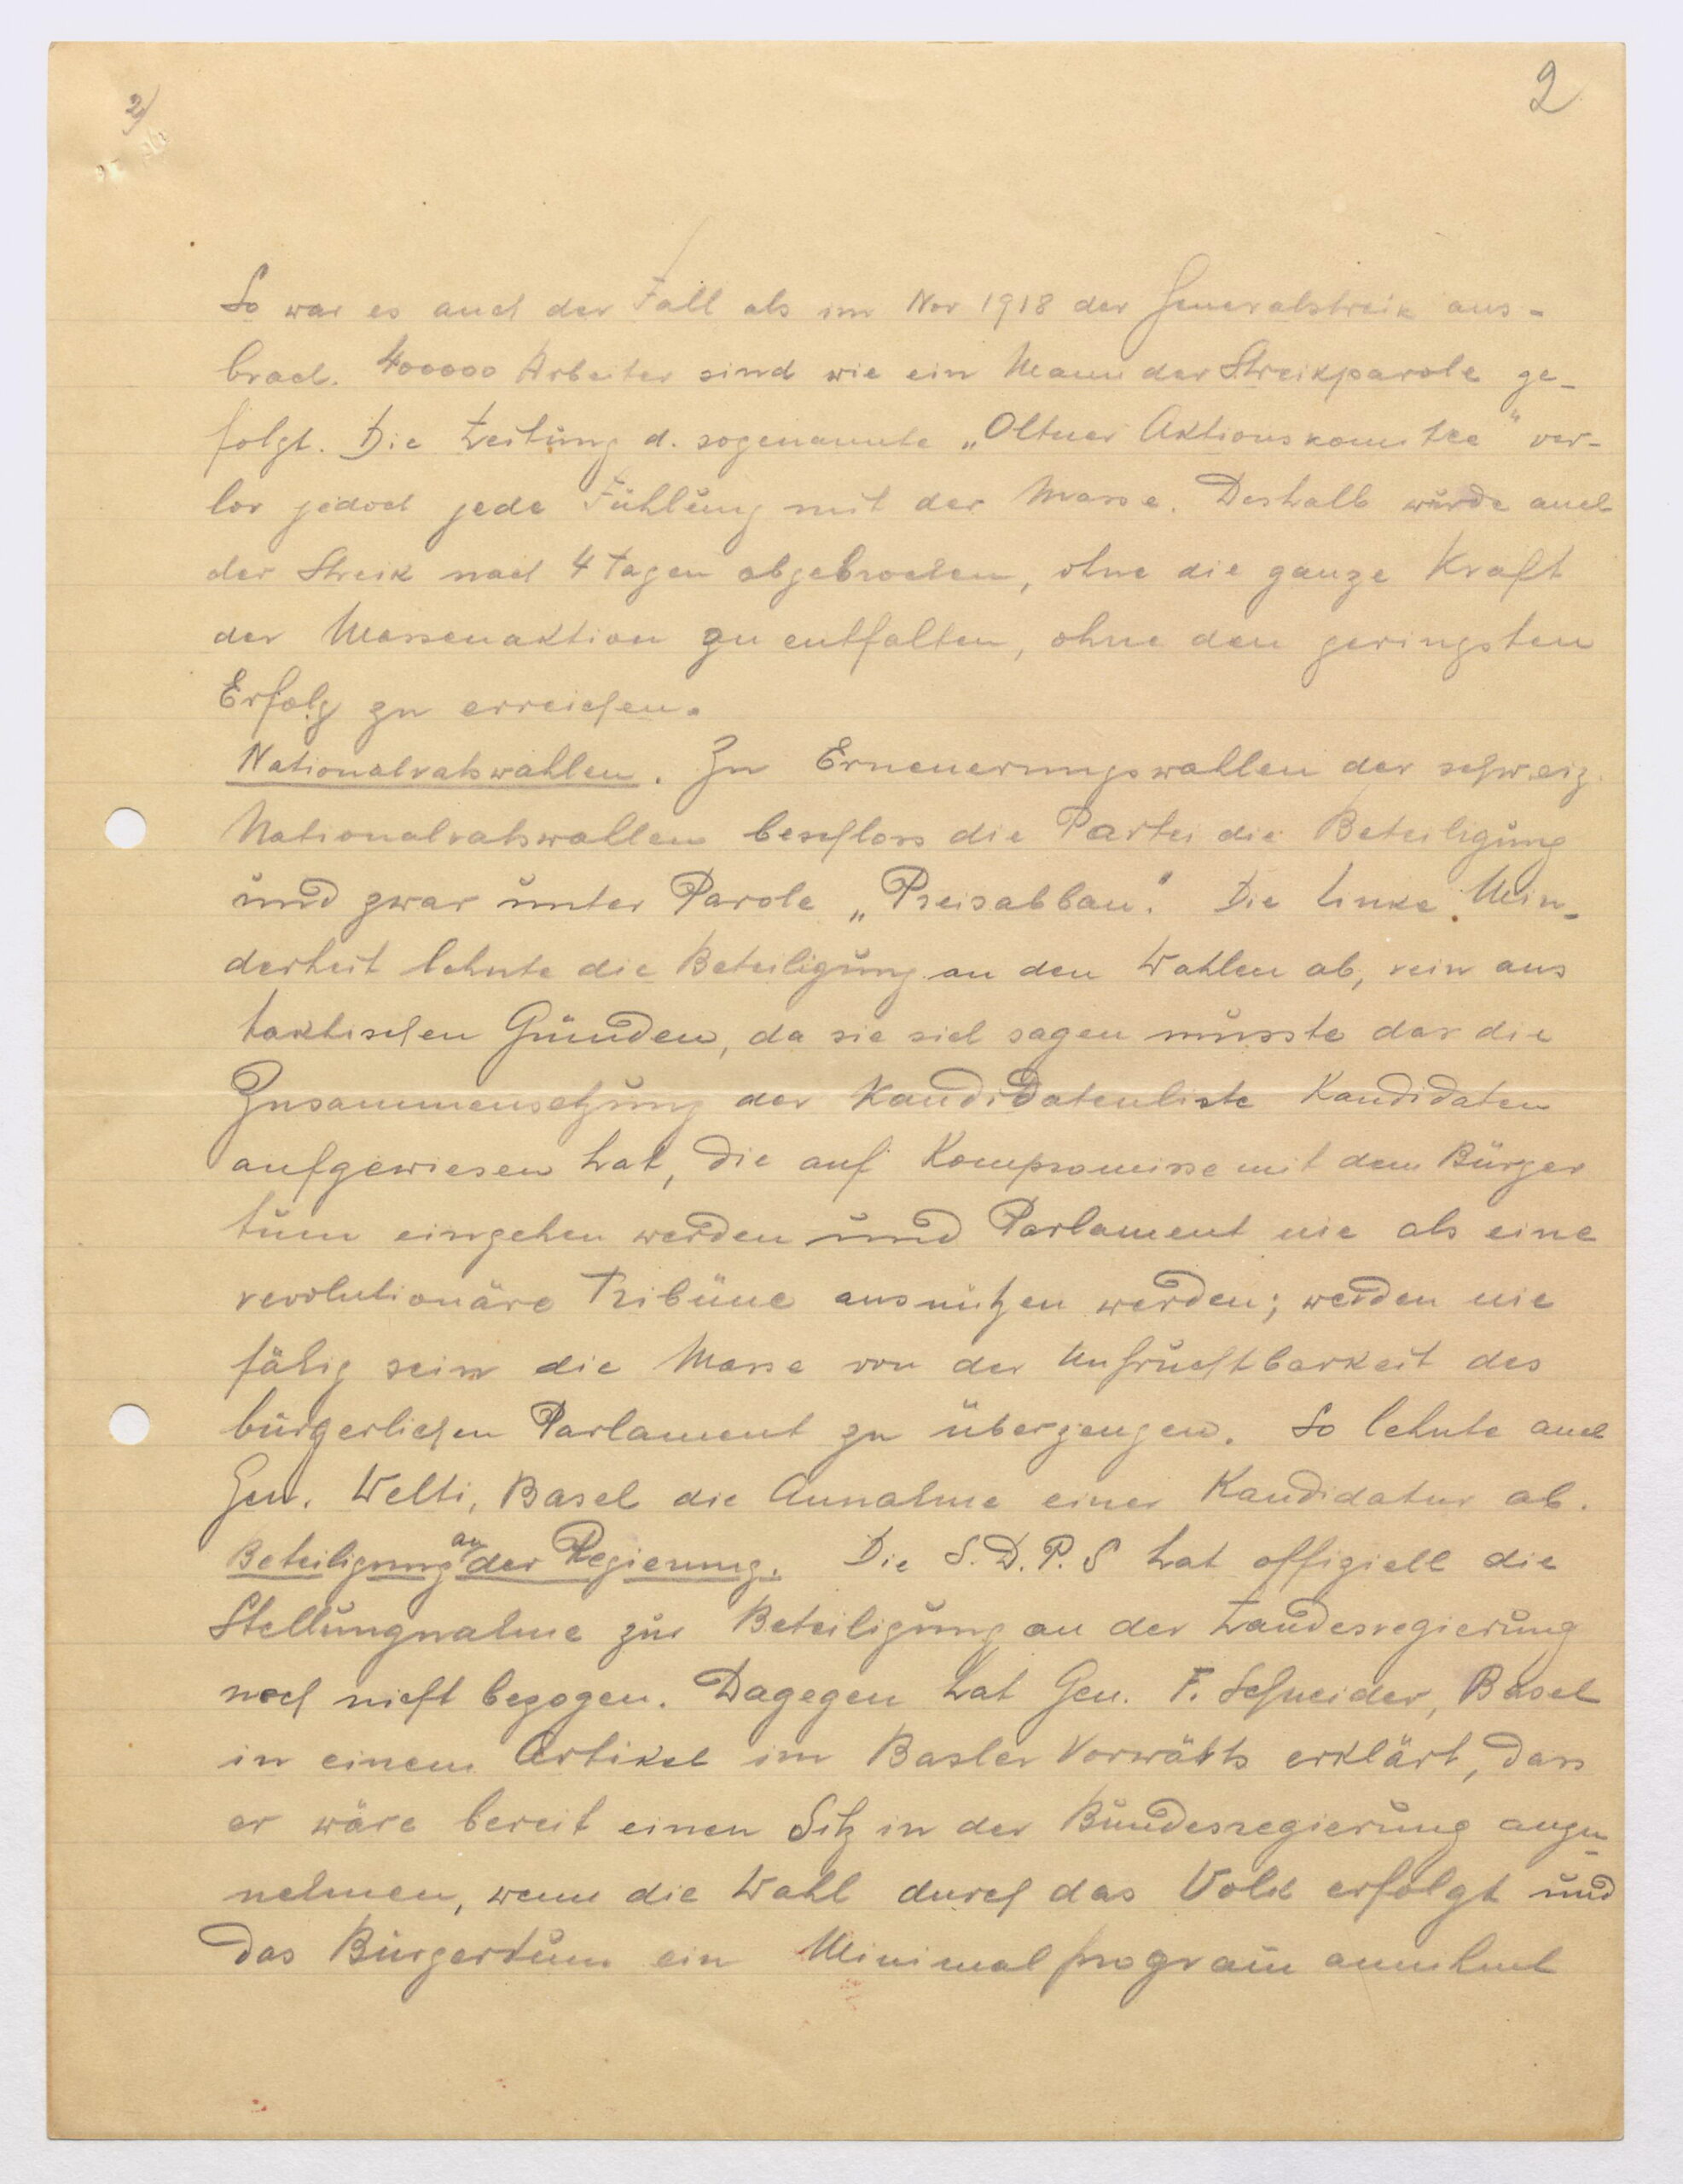 2)
2
So war es auch der Fall als im Nov 1918 der Generalstreik aus-
brach. 400000 Arbeiter sind wie ein Mann der Streikparole ge-
folgt. Die Leitung d. sogenannte „Oltner Aktionskomitee" ver-
lor jedoch jede Fühlung mit der Masse. Deshalb wurde auch
der Streik nach 4 Tagen abgebrochen, ohne die ganze Kraft
der Massenaktion zu entfalten, ohne den geringsten
Erfolg zu erreichen.
Nationalratswahlen. Zu Erneuerungswahlen der schweiz.
Nationalratswahlen beschloss die Partei die Beteiligung
und zwar unter Parole „Preisabbau." Die linke Min-
derheit lehnte die Beteiligung an den Wahlen ab, rein aus
taktischen Gründen, da sie sich sagen musste das die
Zusammensetzung der Kandidatenliste Kandidaten
aufgewiesen hat, die auf Kompromisse mit dem Bürger
tum eingehen werden und Parlament nie als eine
revolutionäre Tribüne ausnützen werden; werden nie
fähig sein die Masse von der Unfruchtbarkeit des
bürgerlichen Parlament zu überzeugen. So lehnte auch
Gen. Welti, Basel die Annahme einer Kandidatur ab.
Beteiligung an der Regierung. Die S.D.P.S hat offiziell die
Stellungnahme zur Beteiligung an der Landesregierung
noch nicht bezogen. Dagegen hat Gen. F. Schneider, Basel
in einem Artikel im Basler Vorwärts erklärt, dass
er wäre bereit einen Sitz in der Bundesregierung anzu-
nehmen, wenn die Wahl durch das Volk erfolgt und
das Bürgertum ein Minimalprogram̄ annihmt